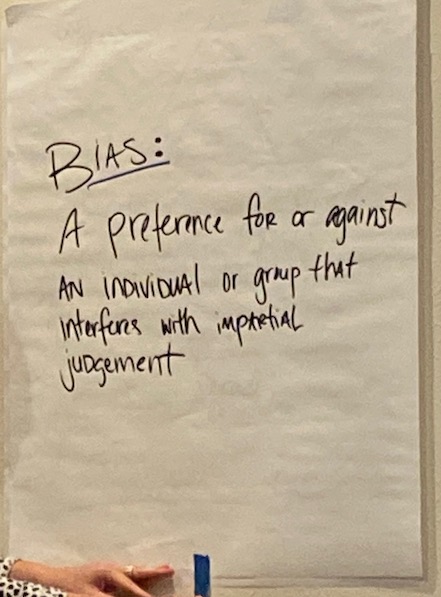 BIAS:
A preference for or against
AN INDIVIDUAL or group that
interferes with impartial
judgement